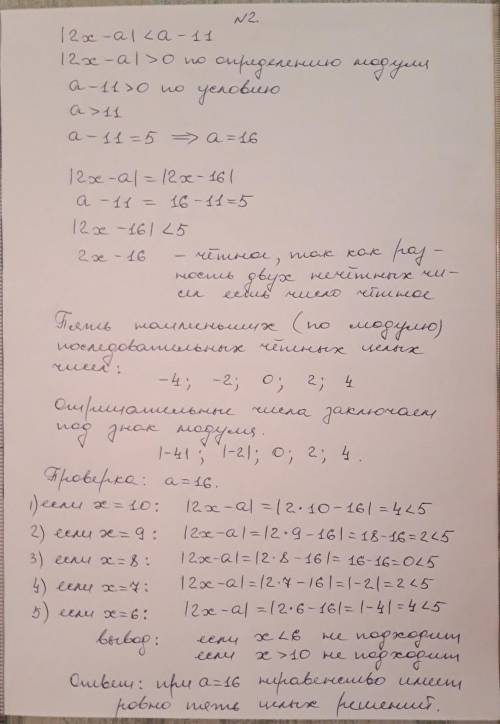 №2.
|2x-a| < a-11
|2x-a| >0 по определению модуля
a-11>0 по условию
a>11
a-11=5 ⟹ a=16
|2x-a| = |2x-16|
a-11 = 16-11=5
|2x-16| <5
2x-16 - чётное, так как раз-
ность двух нечётных чи-
сел есть число чётное
Пять наименьших (по модулю)
последовательных чётных целых
чисел:
-4; -2; 0; 2; 4
Отрицательные числа заключаем
под знак модуля.
|-4|; |-2|; 0; 2; 4.
Проверка: a=16.
1) если x=10: |2x-a| = |2·10-16| = 4<5
2) если x=9: |2x-a| = |2·9-16| = 18-16=2<5
3) если x=8: |2x-a| = |2·8-16| = 16-16=0<5
4) если x=7: |2x-a| = |2·7-16| = |-2| = 2<5
5) если x=6: |2x-a| = |2·6-16| = |-4| = 4<5
вывод: если x<6 не подходит
если x>10 не подходит
Ответ: при a=16 неравенство имеет
ровно пять целых решений.